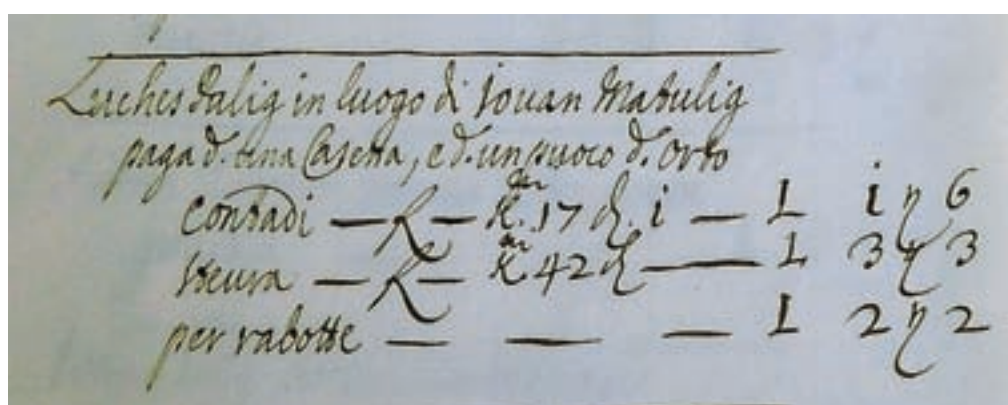 Luches Dalig in luogo di Iouan Matulig
paga d. una Casetta, e d. un puoco d. Orto
Contadi — R — K.17 d. i — L i 6
Steura — R — K 42 d — L 3 3
per rabotte — — — L 2 2